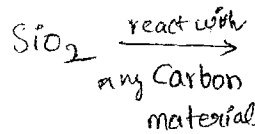 SiO₂ react with
any Carbon
material